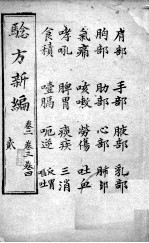 肩部 手部 腋部 乳部
胸部 肋部 心部 肺部
氣痛 咳嗽 勞傷 吐血
哮吼 脾胃 痰疾 三消
食積 噎膈 呃逆
騐方新編
卷二 卷三 卷四
貳